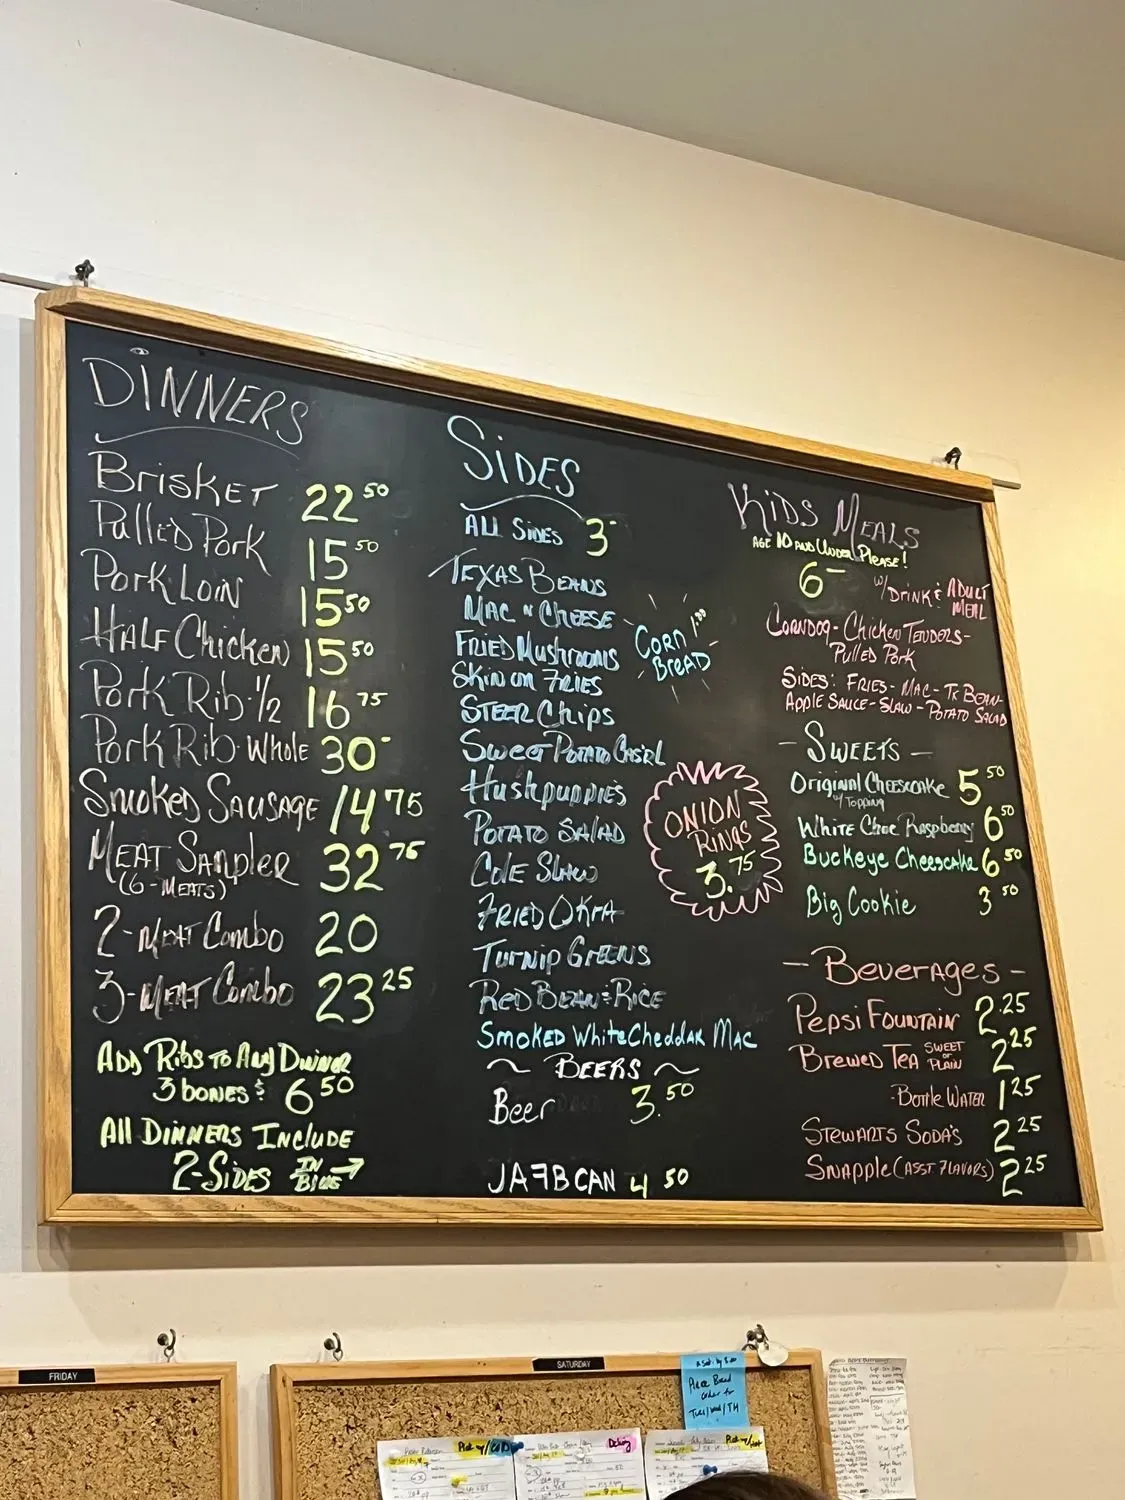 DINNERS
BRISKET 22 50
Pulled Pork 15 50
Pork Loin 15 50
HALF Chicken 15 50
Pork Rib-1/2 16 75
Pork Rib-Whole 30-
Smoked Sausage 14 75
Meat Sampler 32 75
(6-MEATS)
2-MEAT Combo 20
3-MEAT Combo 23 25
ADD Ribs To Any Dinner
3 bones 6 50
All DINNERS INCLUDE
2-SIDES IN BLUE →
SIDES
ALL SIDES 3-
TEXAS BEANS
MAC N CHEESE
FRIED Mushrooms
SKIN ON FRIES
STEER Chips
SWEET POTATO CAS'RL
Hushpuppies
POTATO SALAD
COLE SLAW
FRIED OKRA
Turnip GREENS
RED BEAN & RICE
SMOKED WhiteCheddar MAC
CORN 1.00
BREAD
ONION
RINGS
3.75
~ BEERS ~
Beer 3.50
JAFBCAN 4 50
KIDS MEALS
AGE 10 AND UNDER PLEASE!
6- W/DRINK & ADULT
MEAL
CORNDOG - Chicken TENDERS -
Pulled Pork
SIDES: FRIES - MAC - TX BEAN -
APPLE SAUCE - SLAW - POTATO SALAD
- SWEETS -
Original CHEESECAKE 5 50
W/ TOPPING
White Choc Raspberry 6 50
Buckeye Cheesecake 6 50
Big Cookie 3 50
- BEVERAGES -
PEPSI FOUNTAIN 2.25
BREWED TEA SWEET or PLAIN 2 25
-Bottle WATER 1 25
STEWARTS SODA'S 2 25
SNAPPLE (ASST. FLAVORS) 2 25
FRIDAY
SATURDAY